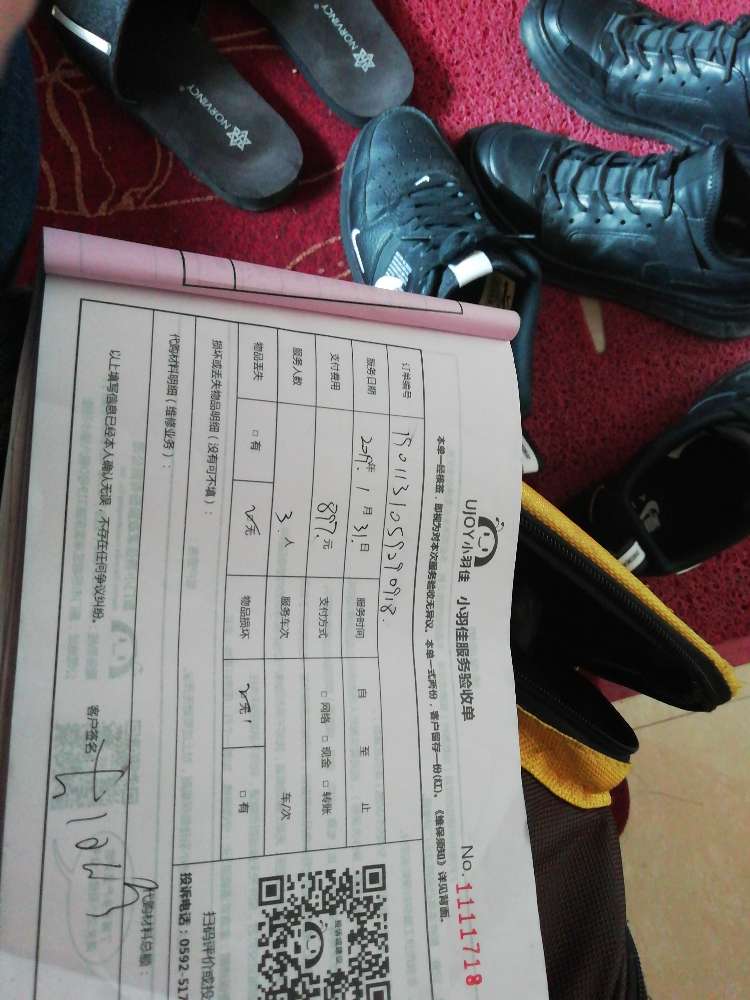 NORVINCY
NORVINCY
UJOY小羽佳 小羽佳服务验收单
No.1111718
本单一经接签，即视为对本次服务验收无异议。本单一式两份，客户留存一份(红)。《维保须知》详见背面。
订单编号 1901131059290918.
服务日期 2019年 1月 31日 服务时间 自 至 止
支付费用 897.元 支付方式 □网络 □现金 □转账
服务人数 3.人 服务车次 车/次
物品丢失 □有 无 物品损坏 无 □有
损坏或丢失物品明细（没有可不填）：
代购材料明细（维修业务）：
代购材料总额：
以上填写信息已经本人确认无误，不存在任何争议纠纷。 客户签名：
扫码评价或投
投诉电话：0592-517